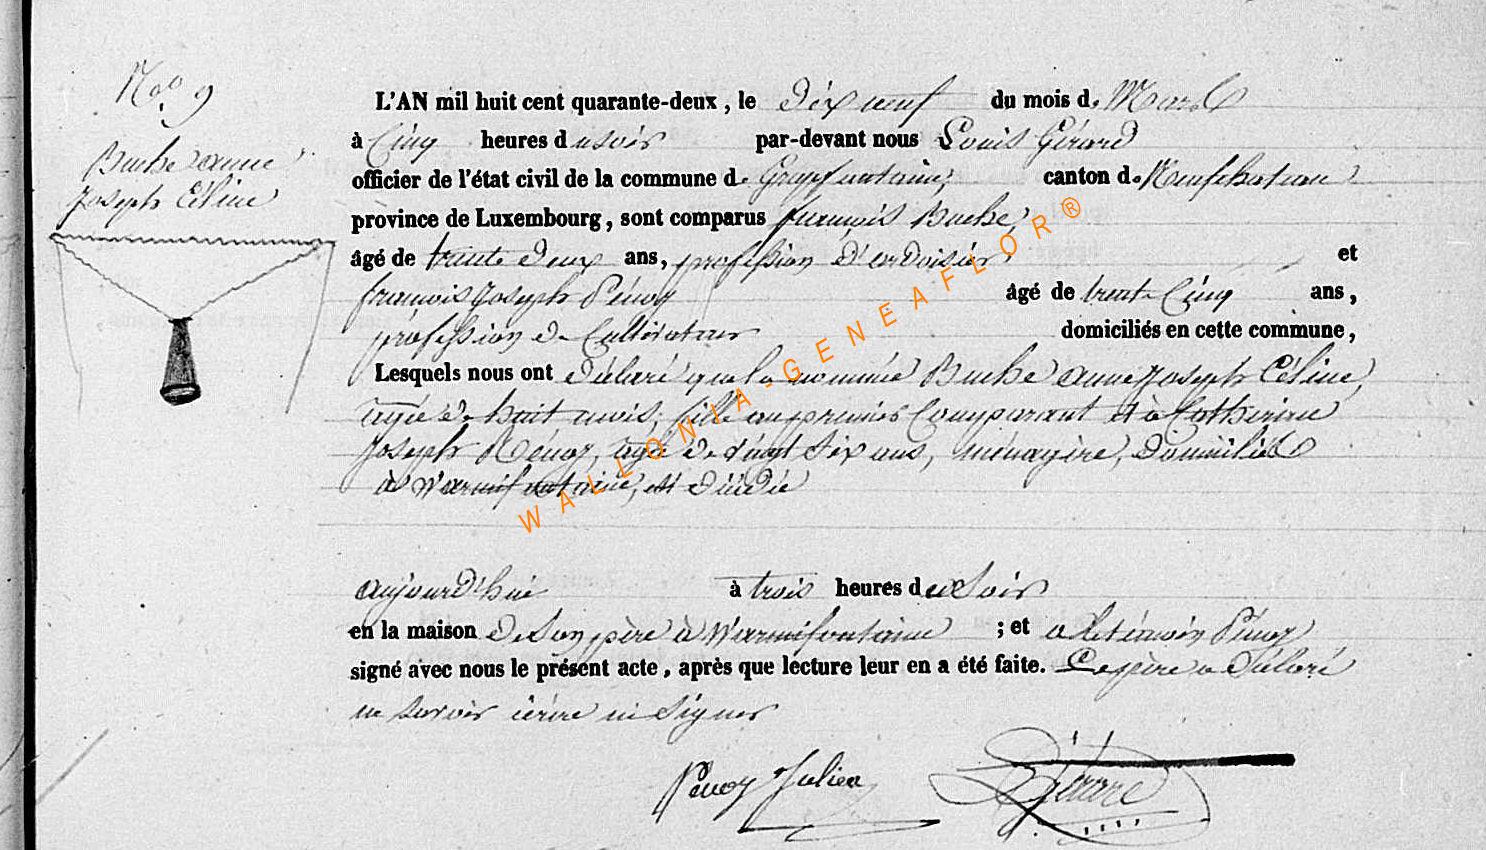 No. 9
Buche anne
Joseph Céline
L'AN mil huit cent quarante-deux, le dix neuf du mois de Mars
à Cinq heures du soir par-devant nous Louis Gérard
officier de l'état civil de la commune de Grapfontaine, canton de Neufchateau
province de Luxembourg, sont comparus françois Buche,
âgé de trente deux ans, profession d'ardoisier et
francois Joseph Pénoy âgé de trente Cinq ans,
profession de Cultivateur domiciliés en cette commune,
Lesquels nous ont déclaré que la nommée Buche anne Joseph Céline,
agée de huit mois, fille au premier Comparant et à Catherine
Joseph agé de vingt six ans, ménagère, domiciliés
à Warmifontaine, est décédée
aujourd'hui à trois heures du Soir
en la maison de Son père à Warmifontaine ; et a le témoin Pénoy
signé avec nous le présent acte, après que lecture leur en a été faite. Le père a déclaré
ne savoir écrire ni Signer
Penoy Julien Gérard
WALLONIA-GENEAFLOR®